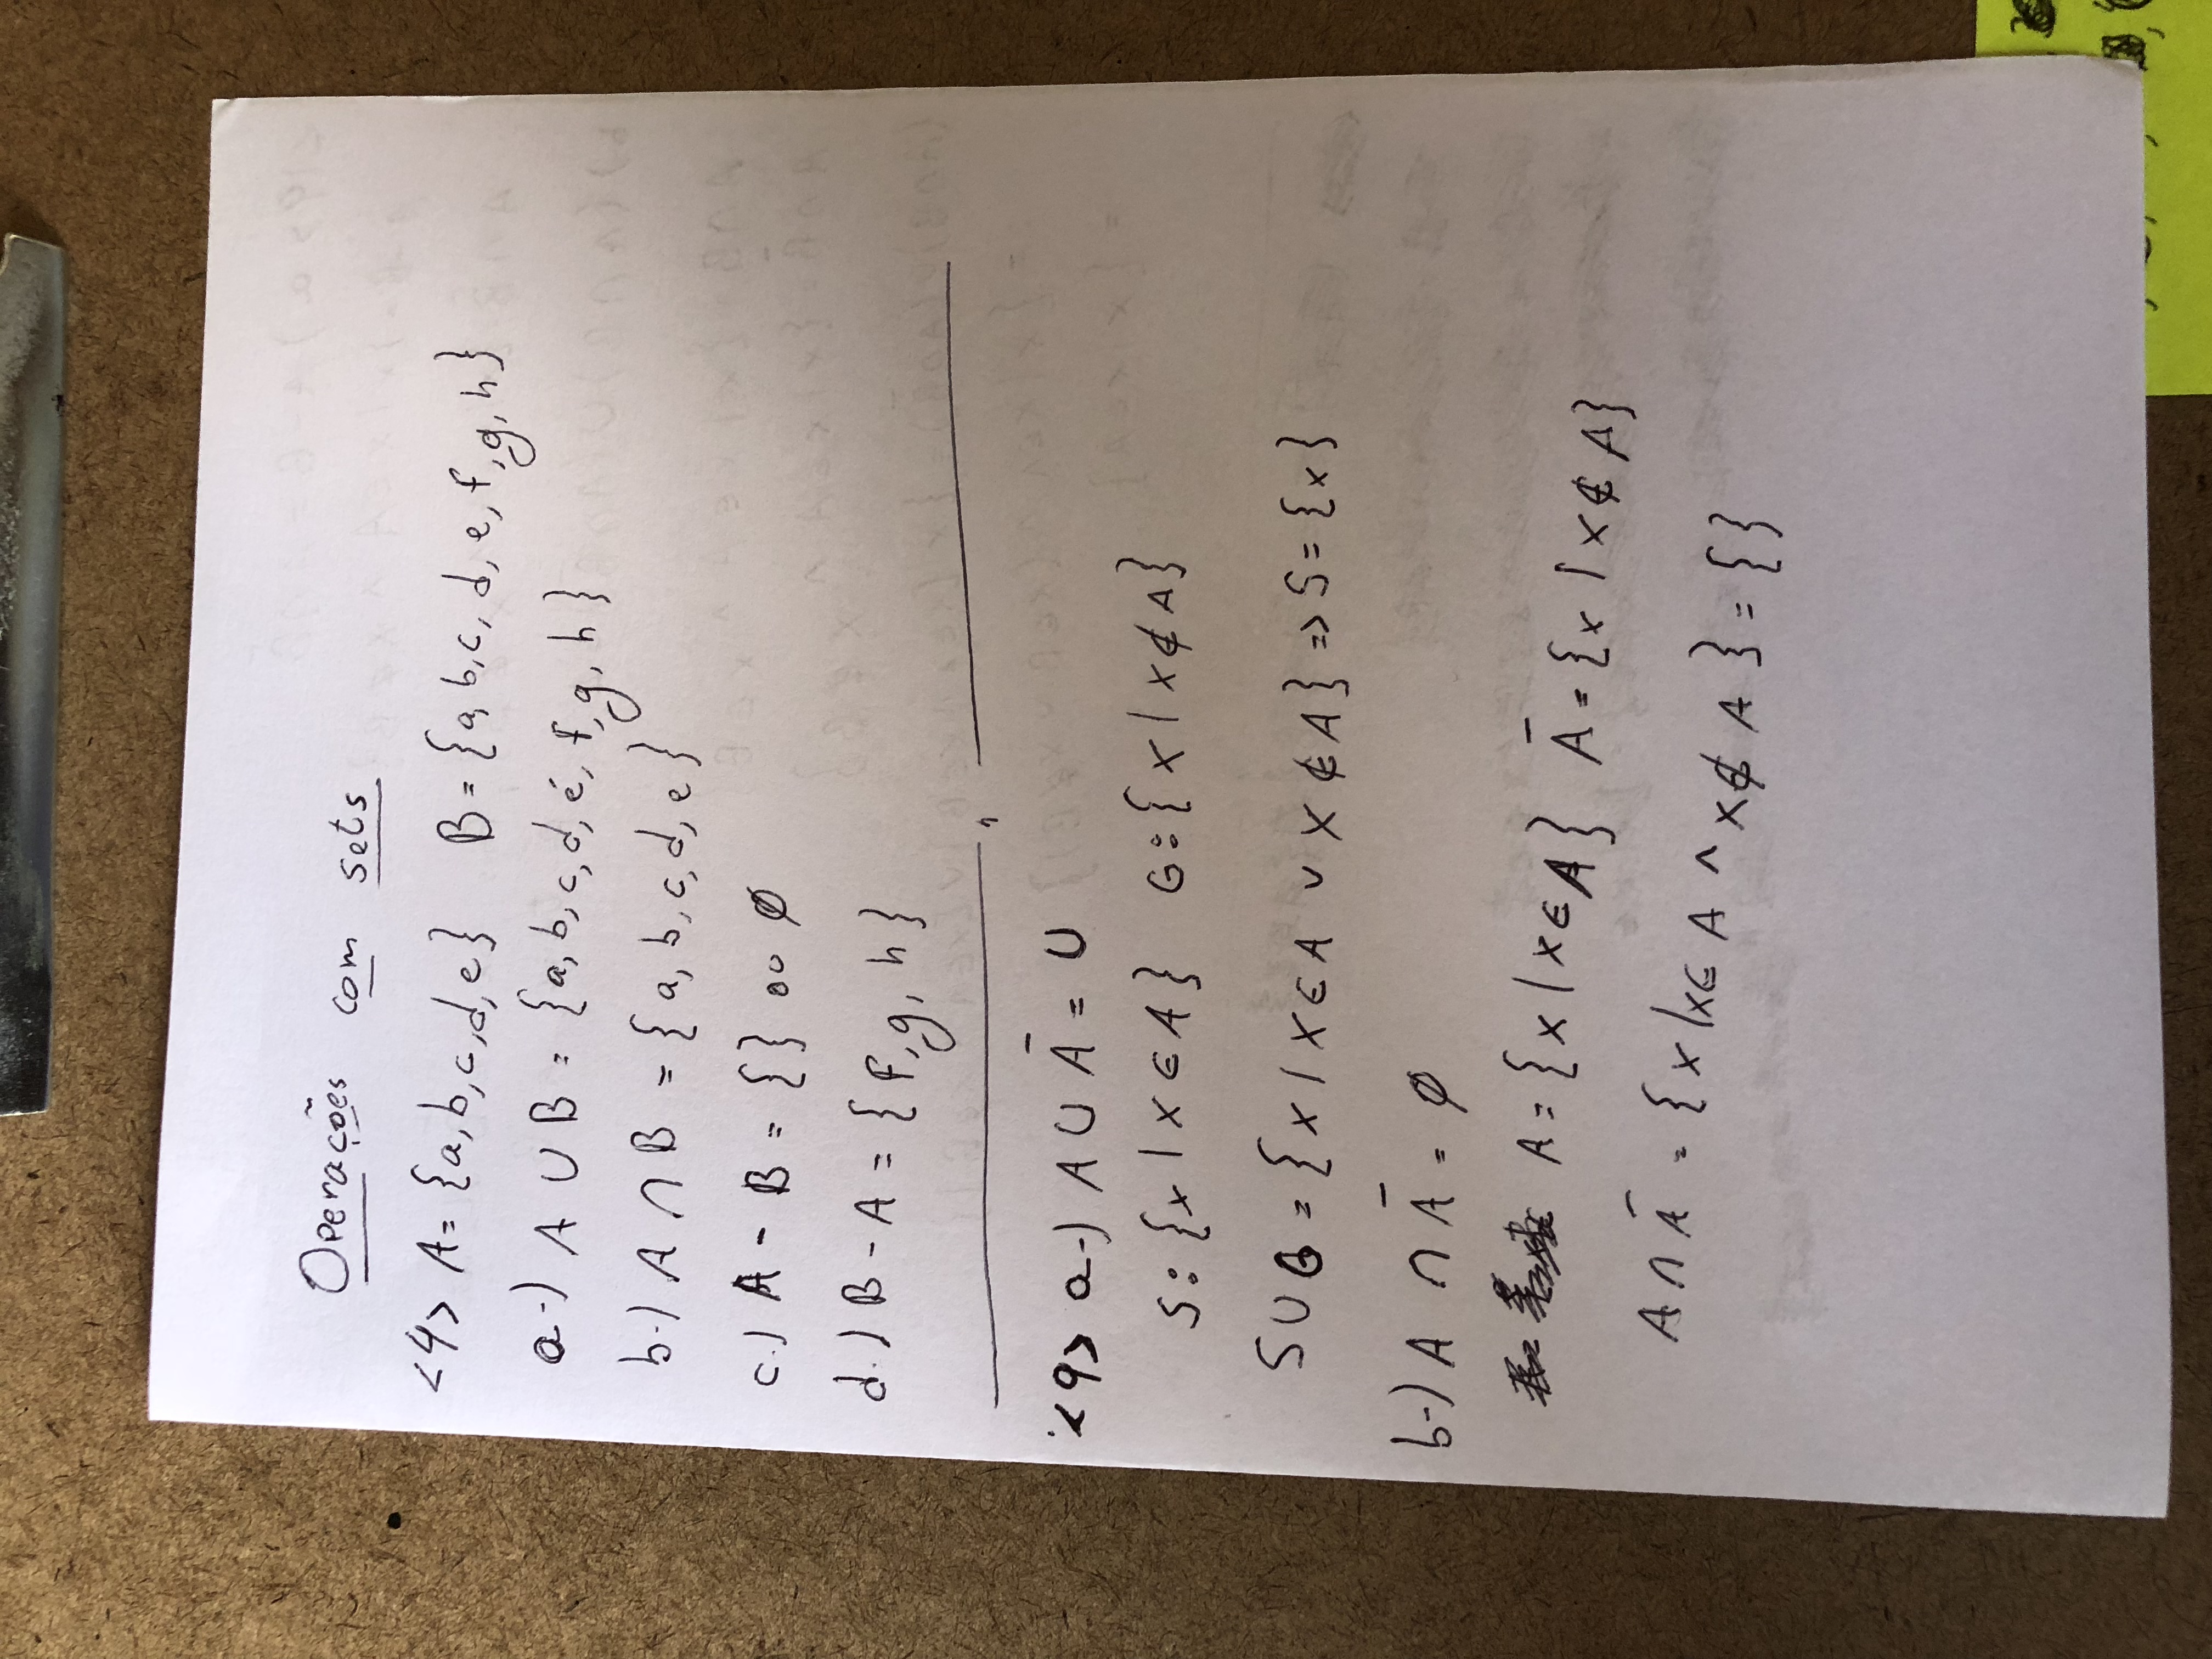 Operações com sets
<4> A = {a, b, c, d, e} B = {a, b, c, d, e, f, g, h}
a-) A ∪ B = {a, b, c, d, e, f, g, h}
b-) A ∩ B = {a, b, c, d, e}
c-) A - B = {} ou ∅
d-) B - A = {f, g, h}
<9> a-) A ∪ A̅ = U
S: {x | x ∈ A} G: {x | x ∉ A}
S ∪ G = {x | x ∈ A ∨ x ∉ A} => S = {x}
b-) A ∩ A̅ = ∅
A = {x | x ∈ A} A̅ = {x | x ∉ A}
A ∩ A̅ = {x | x ∈ A ^ x ∉ A} = {}